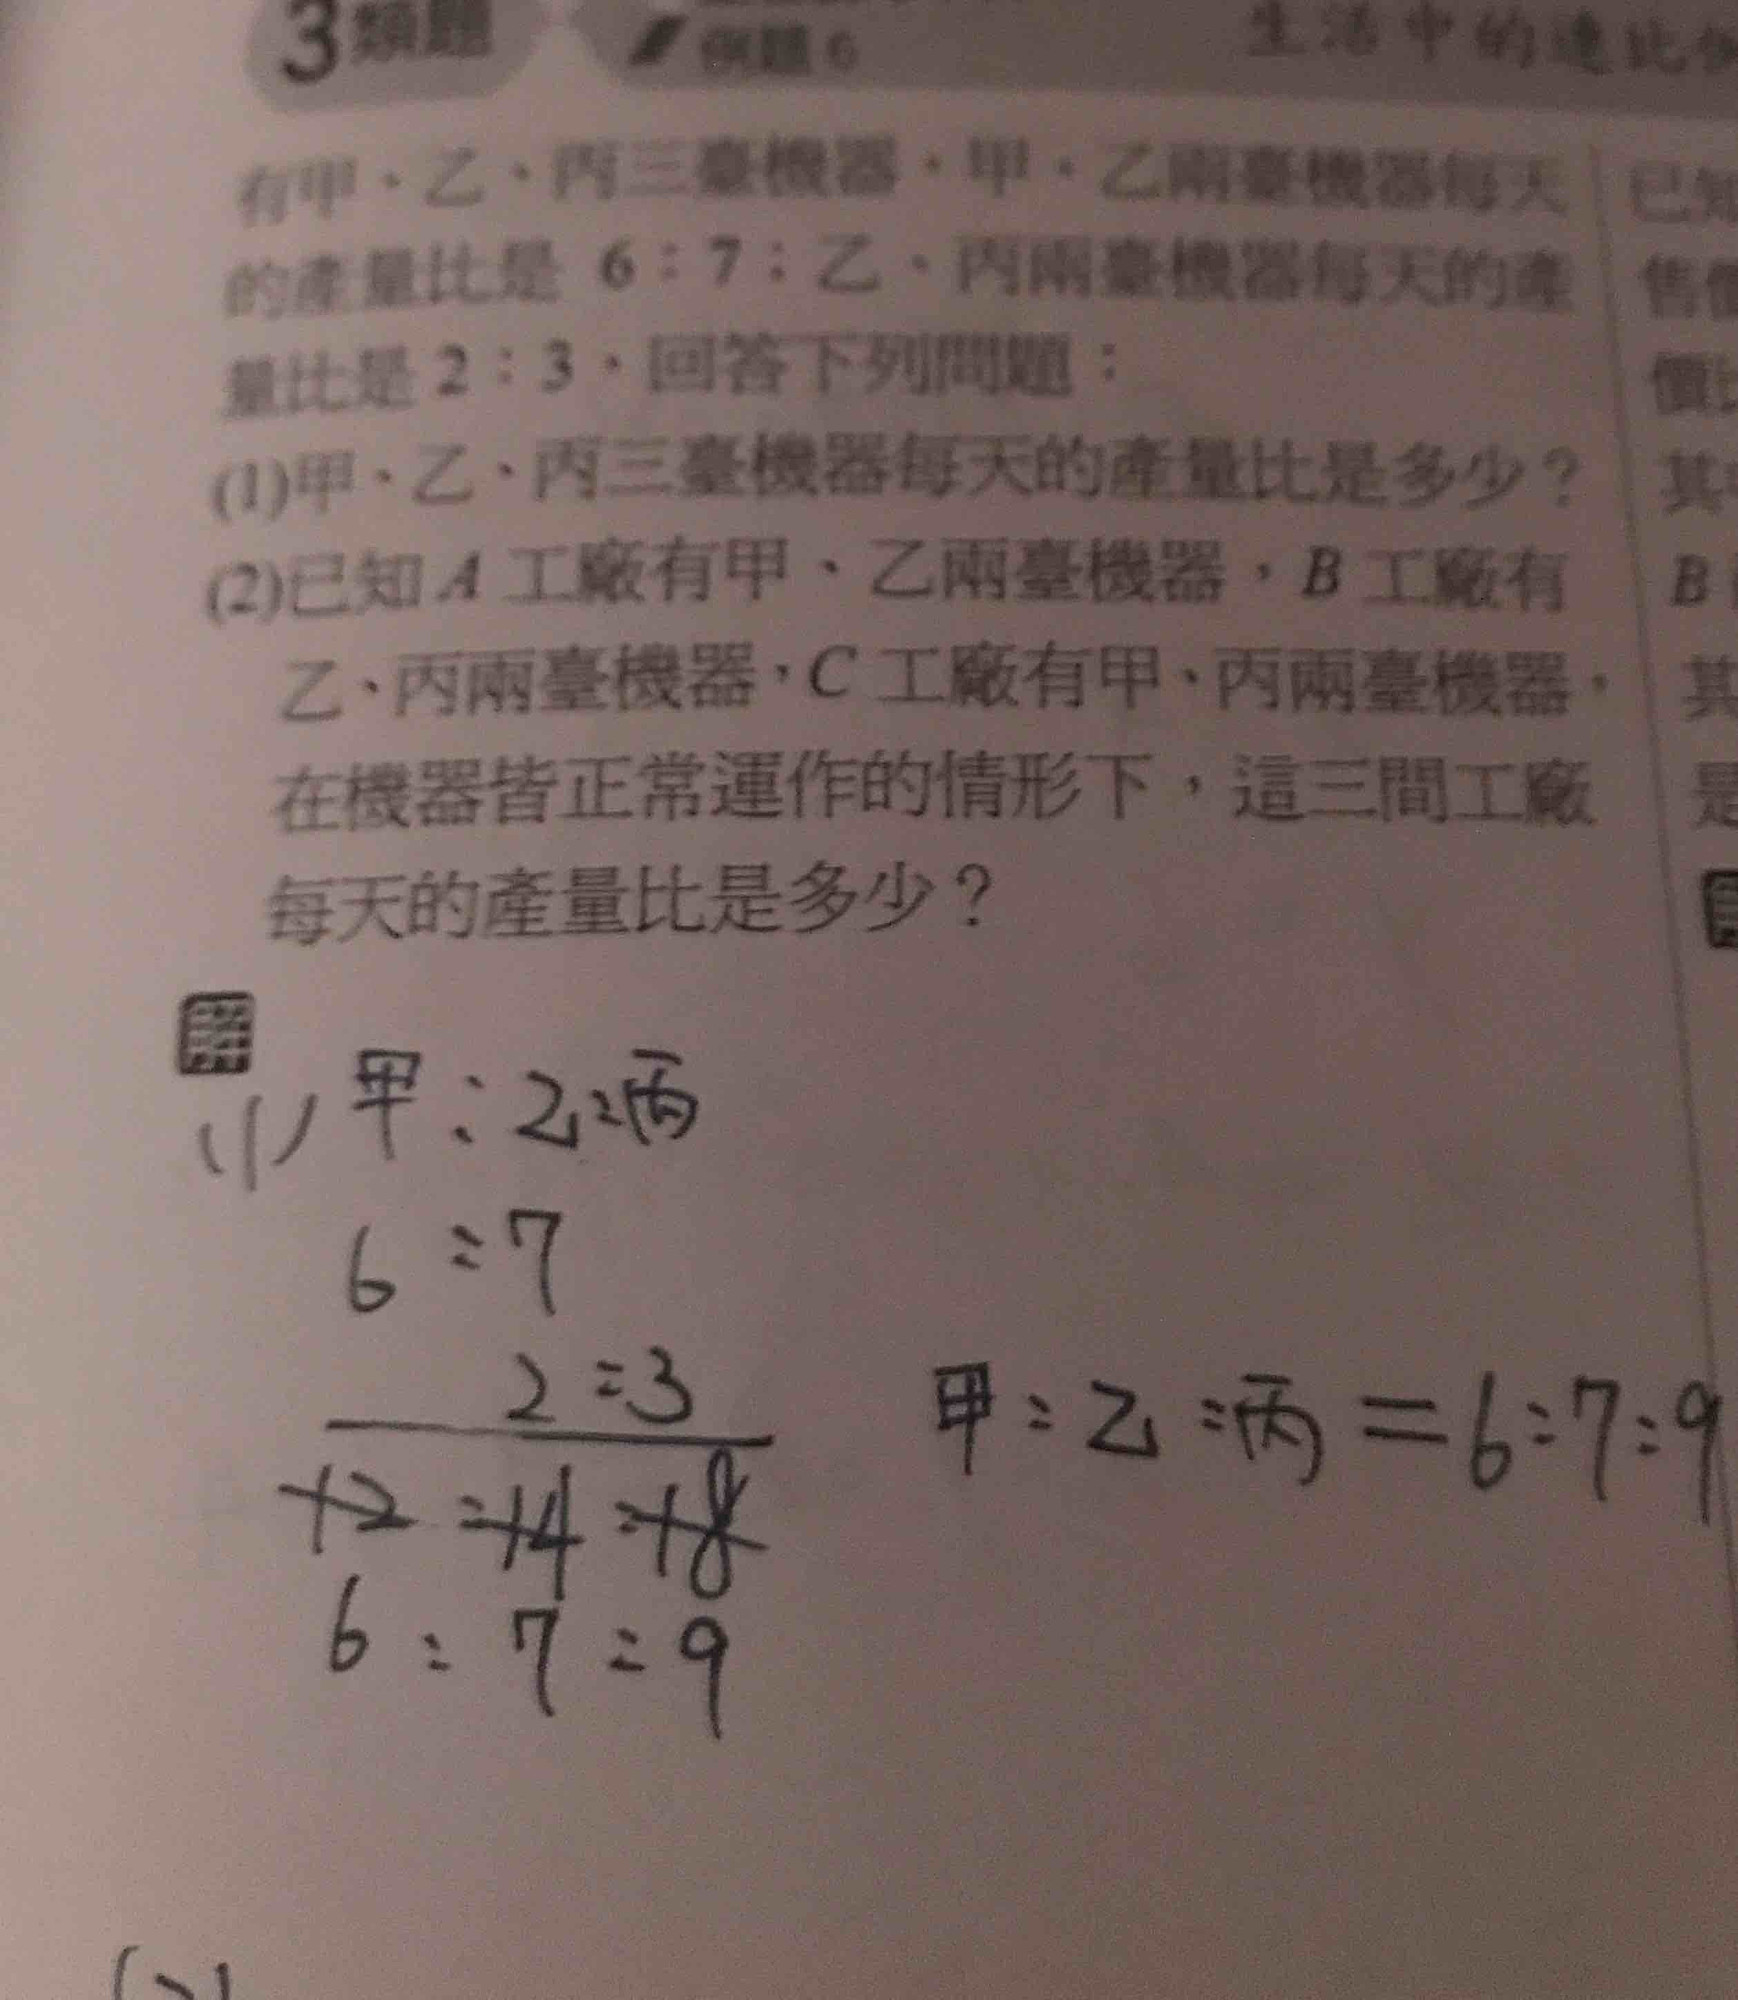 3類題
例題6
生活中的連比例
有甲、乙、丙三臺機器,甲、乙兩臺機器每天
的產量比是 6:7;乙、丙兩臺機器每天的產
量比是2:3,回答下列問題:
(1)甲、乙、丙三臺機器每天的產量比是多少?
(2)已知A工廠有甲、乙兩臺機器,B工廠有
乙、丙兩臺機器,C工廠有甲、丙兩臺機器,
在機器皆正常運作的情形下,這三間工廠
每天的產量比是多少?
已知
售價
價比
其中
B
其
是
解
(1) 甲:乙:丙
6:7
2:3
12:14:18
6:7:9
甲:乙:丙=6:7:9
(2)